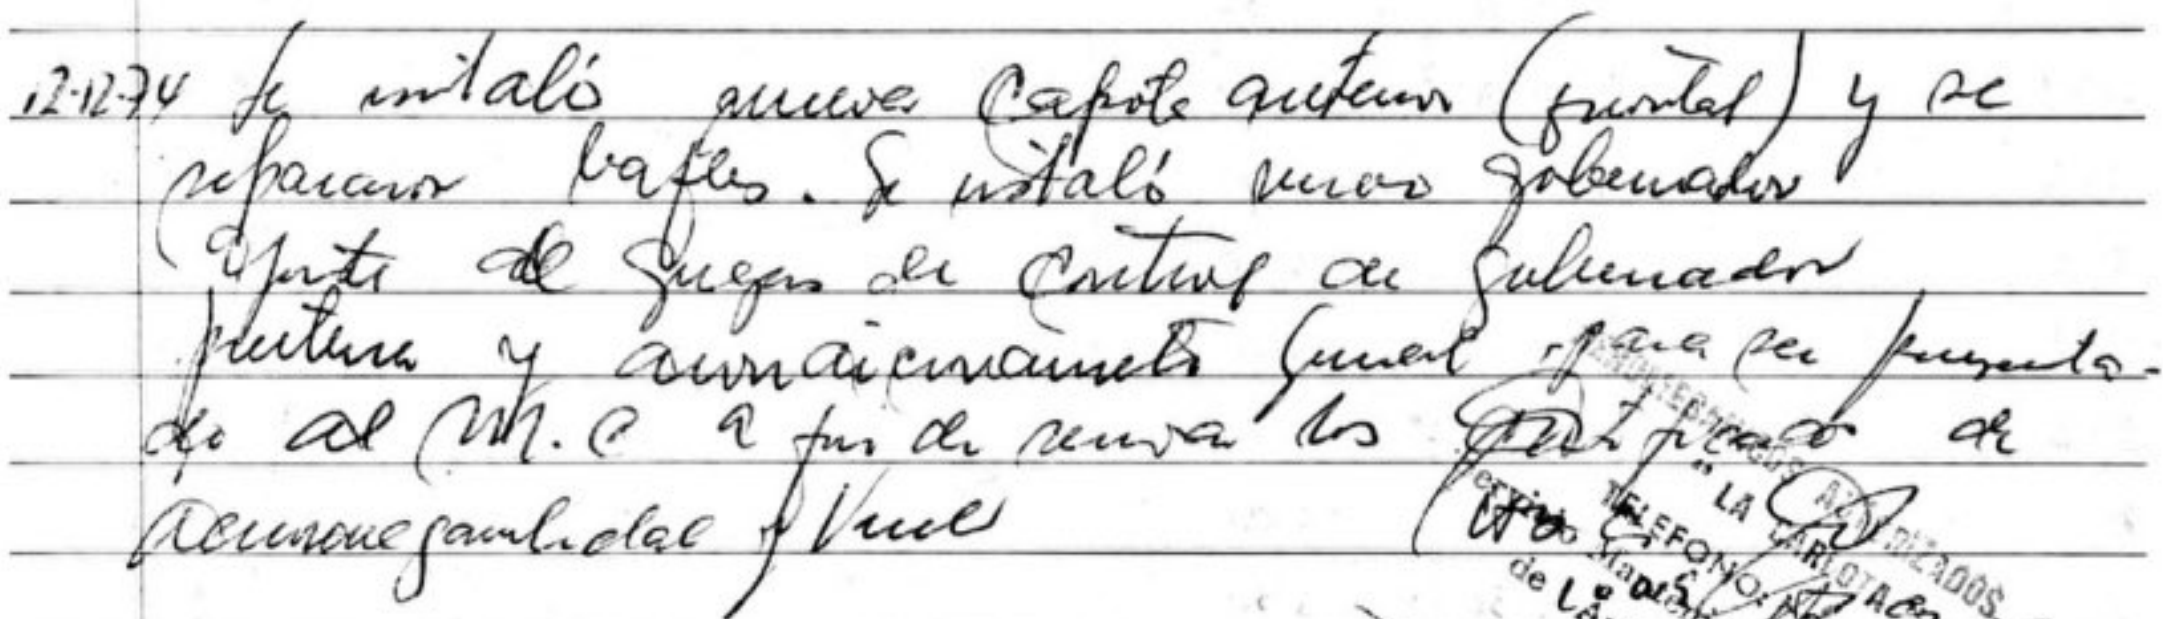 12-12-74 Se instaló nueva Capota anterior (frontal) y se
repararon bafles. Se instaló nuevo gobernador
ajuste de de control de gobernador
pintura y acondicionamiento General para ser presenta-
do al M.C a fin de renovar los certificados de
aeronavegavilidad y Vuelo
"LA CARLOTA"
TELEFONO: